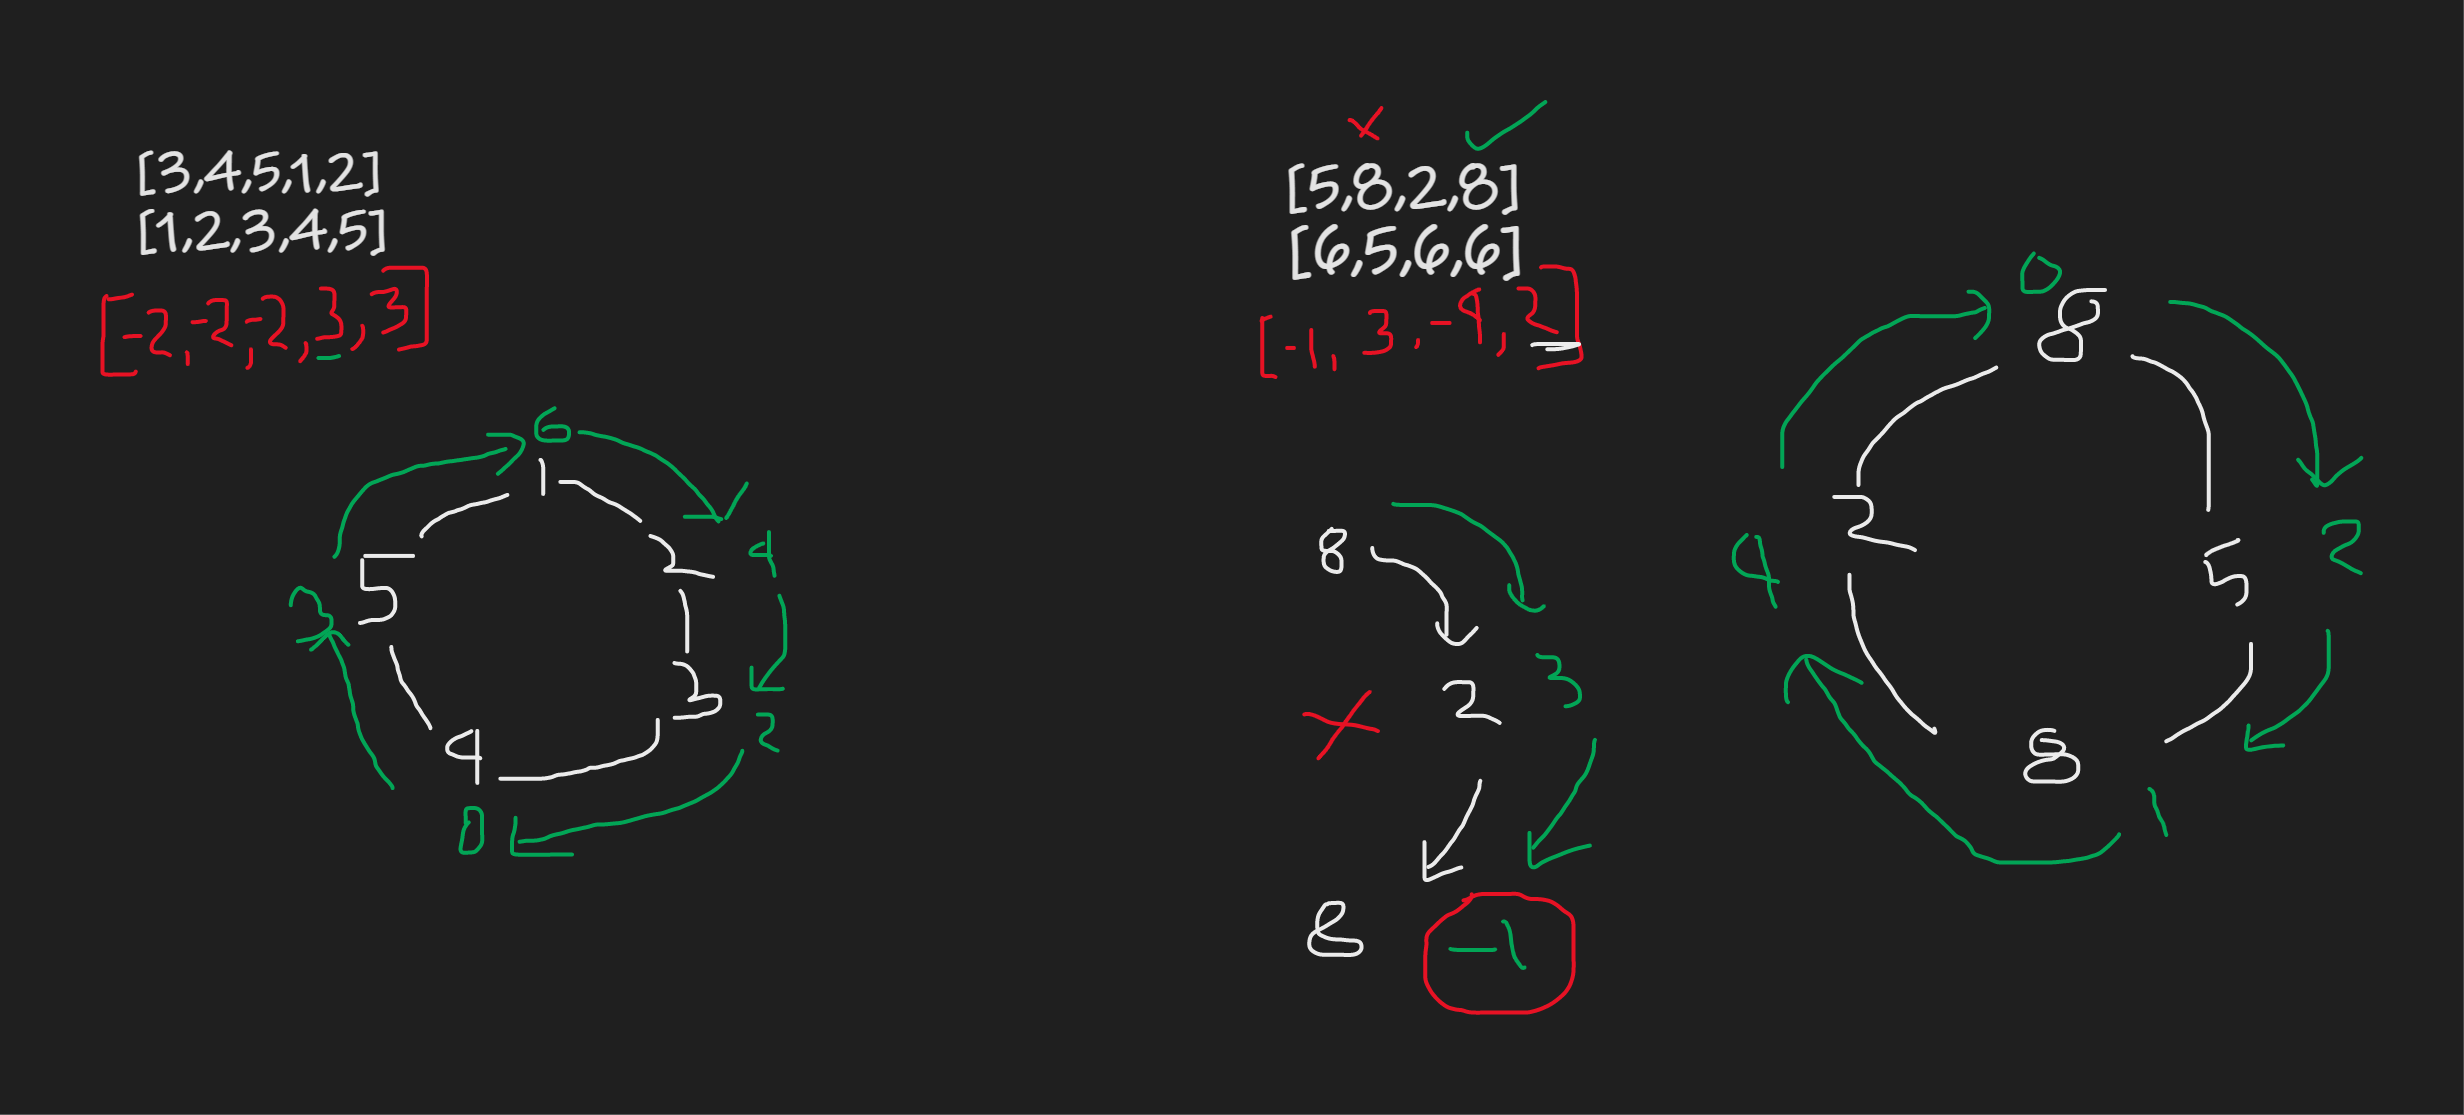 [3,4,5,1,2]
[1,2,3,4,5]
[-2,-2,-2,3,3]
6
1
2
4
5
3
3
2
4
0
[5,8,2,8]
[6,5,6,6]
[-1,3,-4,2]
8
2
3
8
-1
0
8
2
4
5
2
8
1